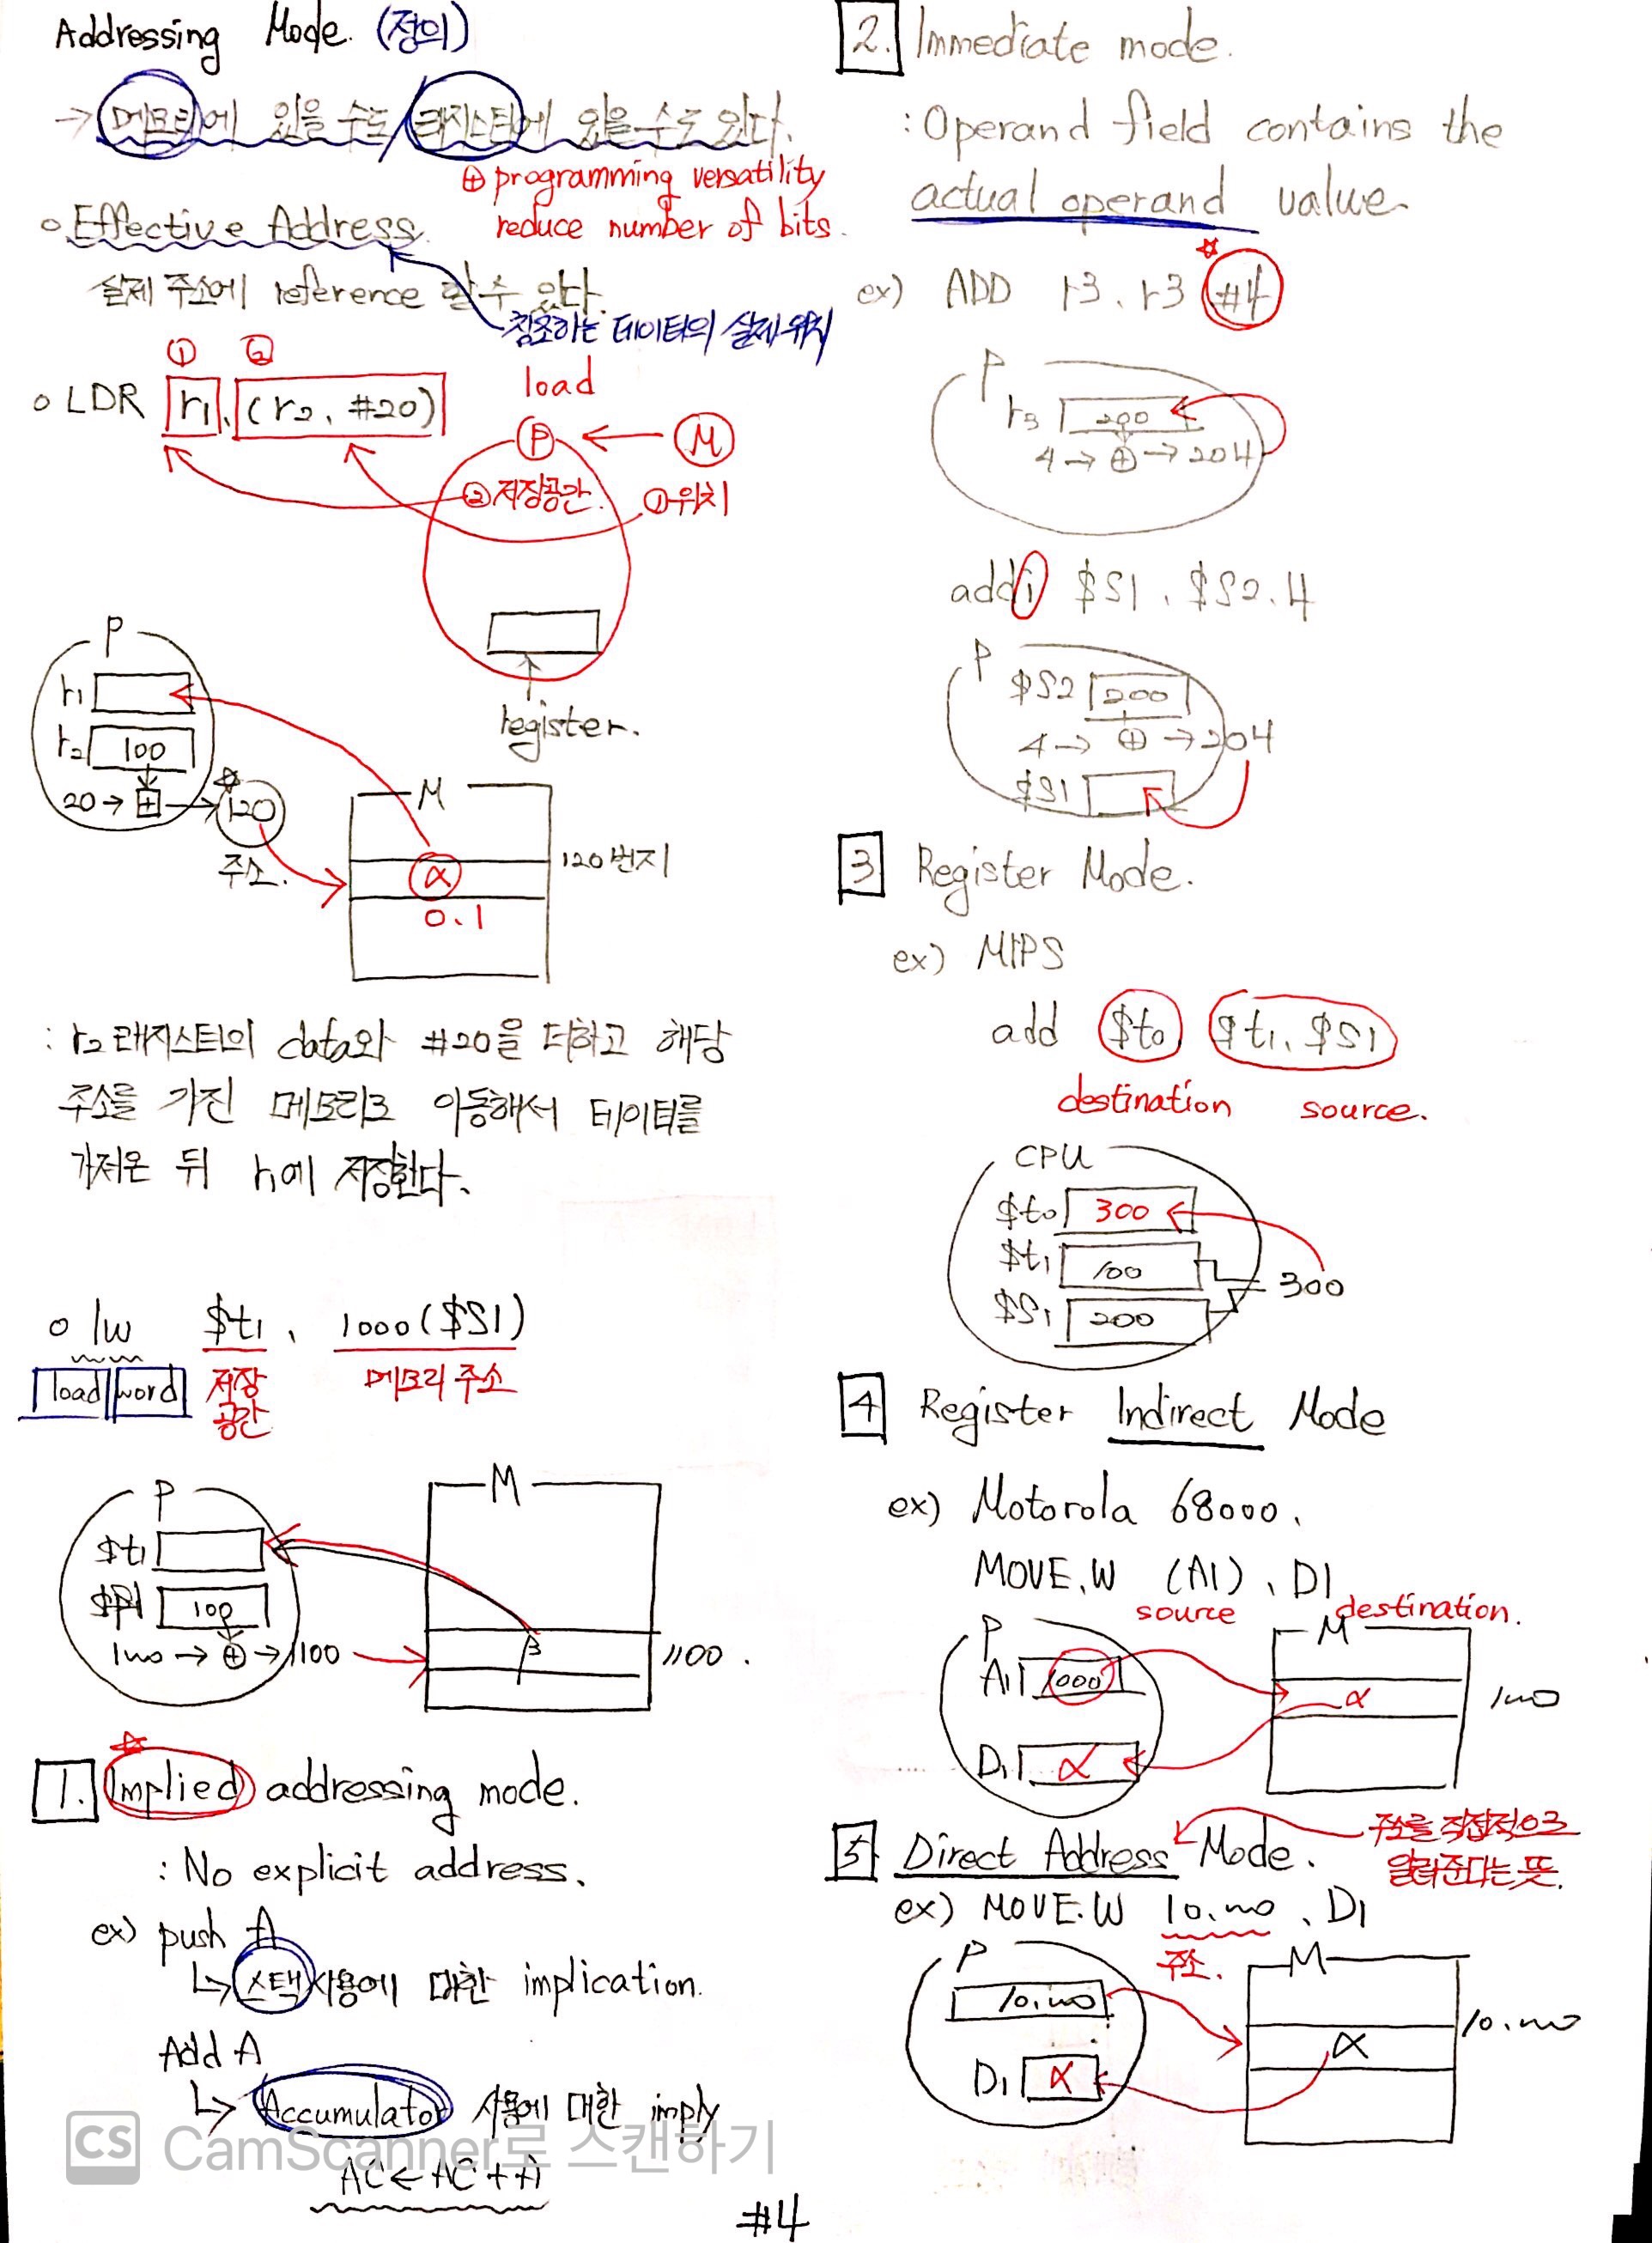 Addressing Mode. (정의)
→ 메모리에 있을 수도/레지스터에 있을 수도 있다.
⊕ programming versatility
reduce number of bits.
○ Effective Address.
실제 주소에 reference 할 수 있다.
참조하는 데이터의 실제 위치
① ②
○ LDR r1, (r2, #20)
load
P ← M
② 저장공간. ① 위치
register.
P
r1
r2 100
20 → + → 120
주소.
M
α
0.1
120번지
: r2 레지스터의 data와 #20을 더하고 해당
주소를 가진 메모리로 이동해서 데이터를
가져온 뒤 r1에 저장한다.
○ lw $t1, 1000($S1)
load word
저장
공간
메모리 주소
P
$t1
100
1000 → ⊕ → 1100
M
β
1100.
1. Implied addressing mode.
: No explicit address.
ex) push A
↳ 스택 사용에 대한 implication.
Add A
↳ Accumulator 사용에 대한 imply
AC ← AC + A
CS CamScanner로 스캔하기
#4
2. Immediate mode.
: Operand field contains the
actual operand value
ex) ADD r3, r3 #4
P
r3 200
4 → ⊕ → 204
addi $S1, $S2, 4
P
$S2 200
4 → ⊕ → 204
$S1
3 Register Mode.
ex) MIPS
add $t0 $t1, $S1
destination source.
CPU
$t0 300
$t1 100
$S1 200
300
4 Register Indirect Mode
ex) Motorola 68000.
MOVE.W (A1), D1
source destination.
P
A1 1000
D1 α
M
α
1000
5 Direct Address Mode.
주소를 직접적으로
알려준다는 뜻.
ex) MOVE.W 10.000, D1
주소.
P
10.000
D1 α
M
α
10.000